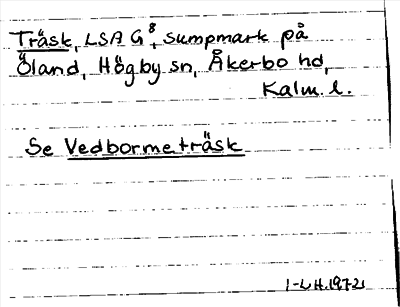 Träsk, LSA G⁸, sumpmark på
Öland, Högby sn, Åkerbo hd,
Kalm. l.
Se Vedbormeträsk
I-L H. 1972